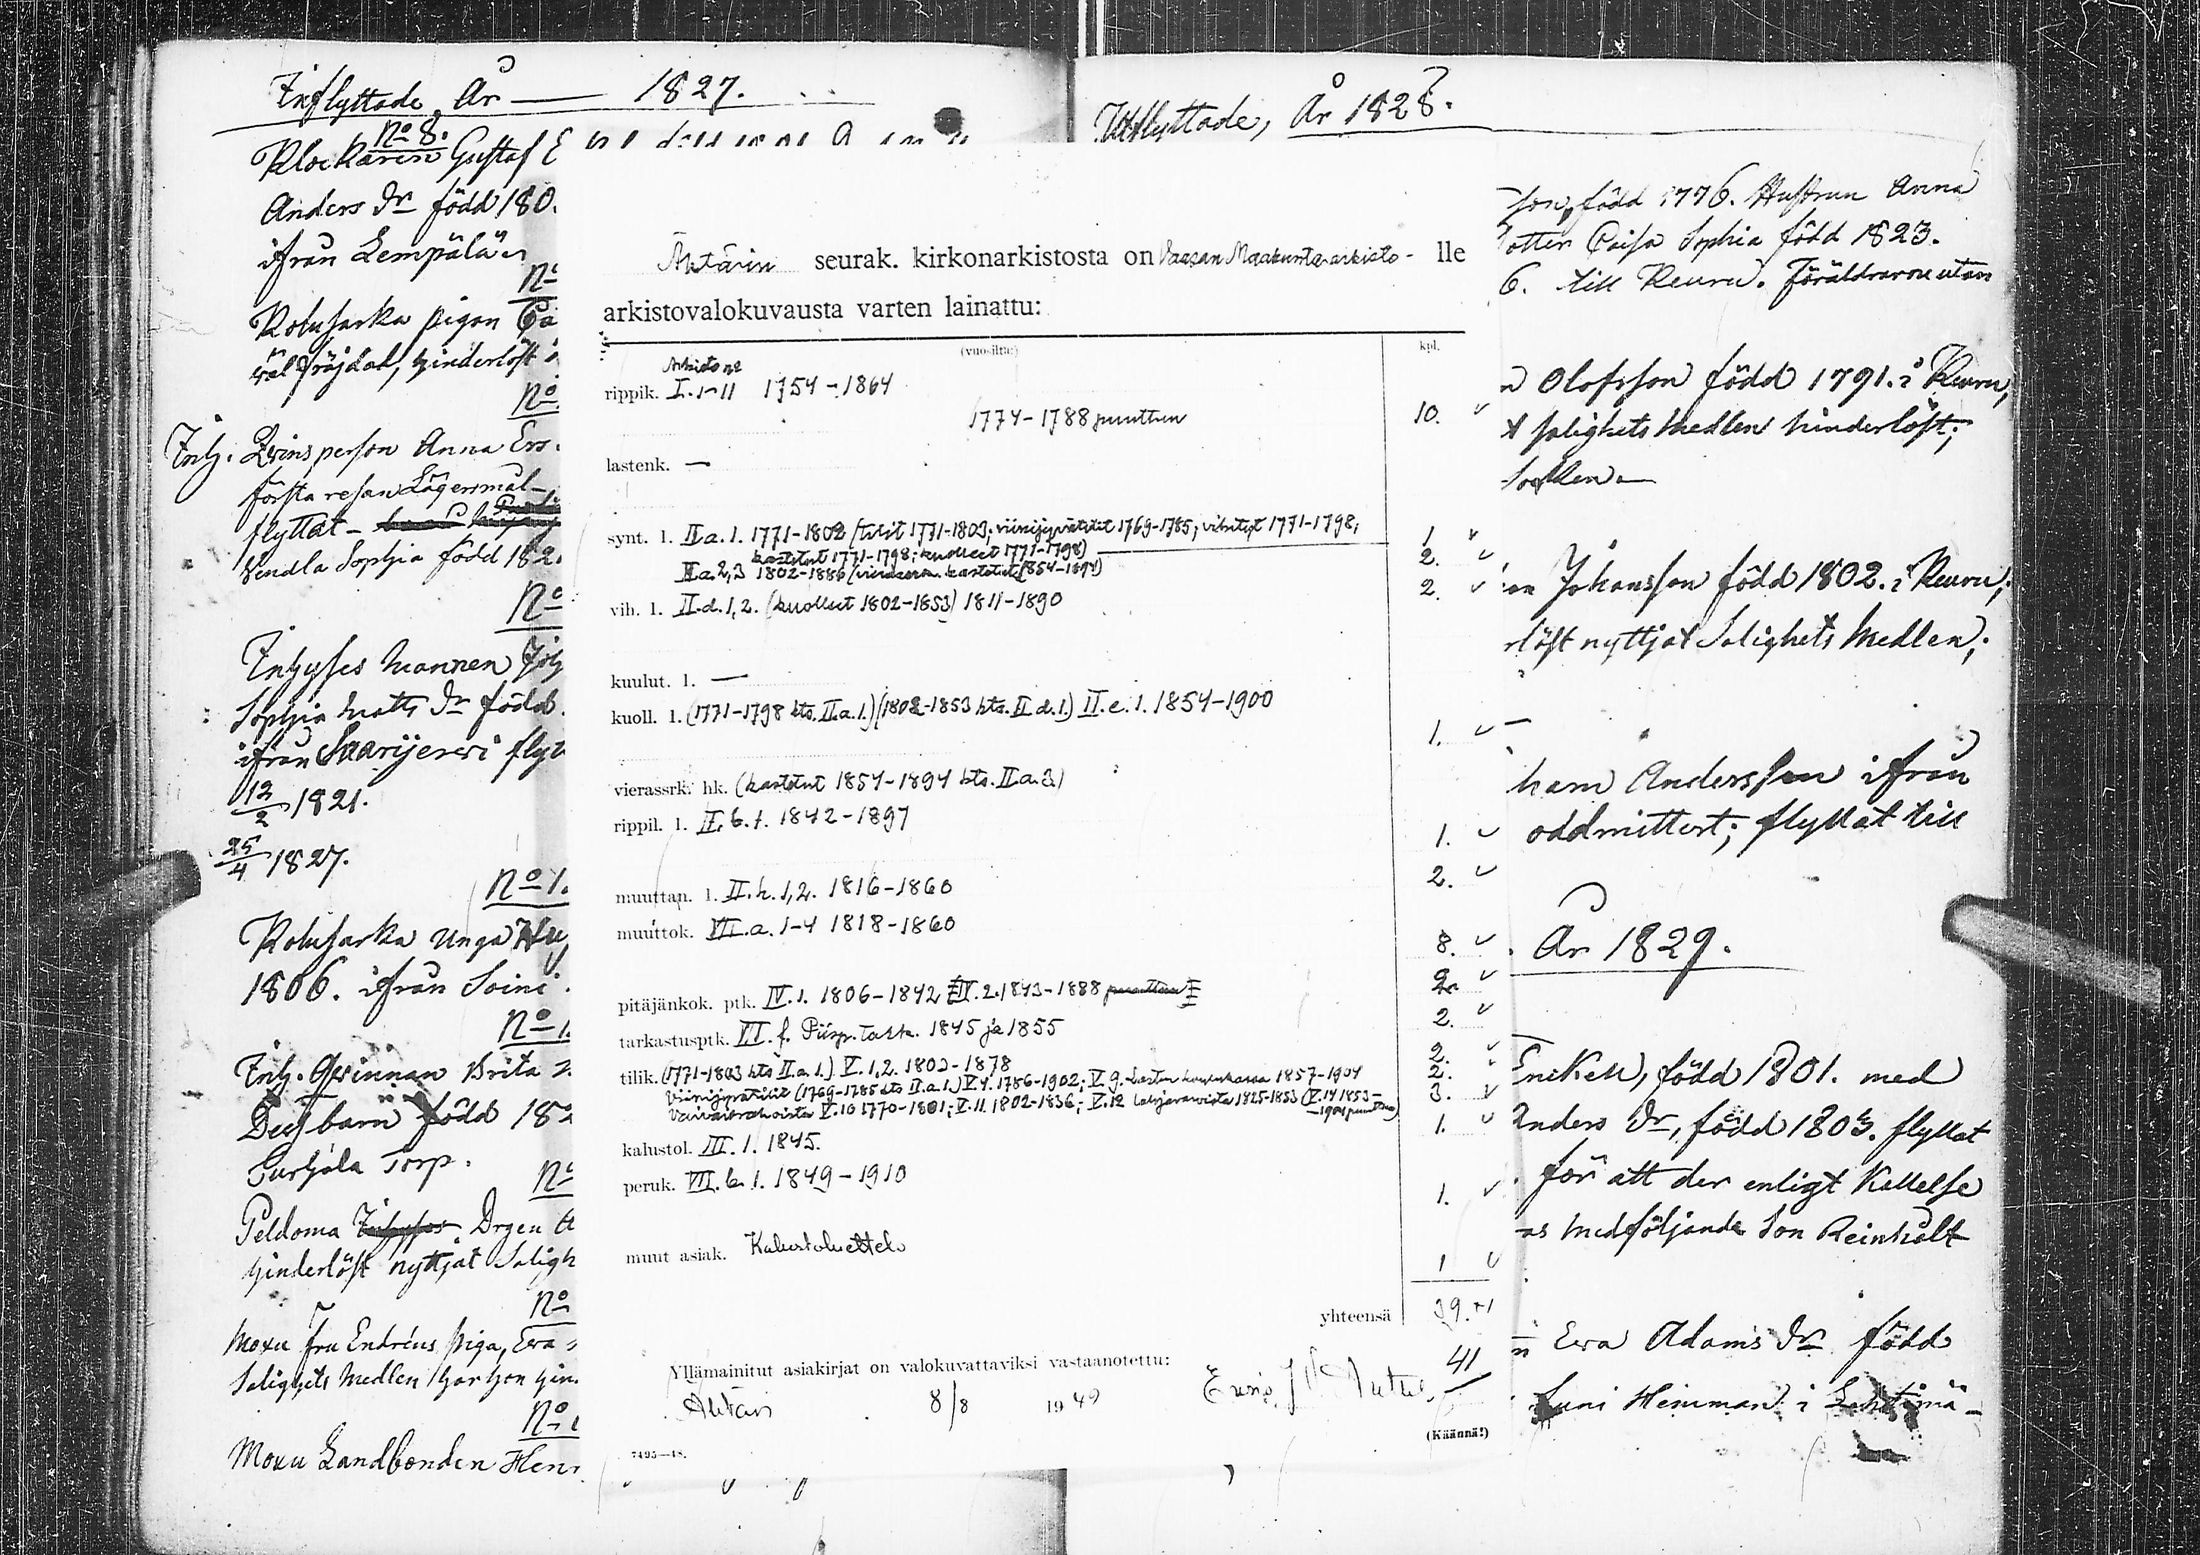 Inflyttade År — 1827.
No 8.
Klockaren Gustaf E
Anders dr född 180
ifrån Lempälä
No
Kolusarka pigan Ca
väl fräjdad, hinderlöst
No
Inh. Qvinsperson Anna Ers
första resan Lägersmål
flyttat —
Vendla Sophia född 182
No
Inhyses mannen Joh
Sophia Matts dr född
ifrån Saarijerwi flyt
12/2 1821.
25/4 1827.
No 1
Kolusarka Unga
1806. ifrån Soini
No 1
Inh. Qvinnan Brita
Dess barn född 182
Torp.
No
Peldoma Inhyses Drgen
hinderlöst nyttjat Saligh
No
Moxu fru Endréns piga, Eva
Salighets Medlen har hon hin
No
Moxu Landbonden Henr
Ähtärin seurak. kirkonarkistosta on Vaasan Maakunta-arkisto-lle
arkistovalokuvausta varten lainattu:
(vuosilta:) kpl.
Arkisto no
rippik. I. 1-11 1754-1864
1774-1788 puuttuu 10. v
lastenk. —
synt. l. II a. 1. 1771-1802 (tilit 1771-1803; viinijyvätilit 1769-1785; vihityt 1771-1798;
kastetut 1771-1798; kuolleet 1771-1798) 1 v
II a. 2, 3 1802-1886 (vierassrk. kastetut 1854-1894) 2. v
vih. l. II. d. 1, 2. (kuolleet 1802-1853) 1811-1890 2. v
kuulut. l. —
kuoll. l. (1771-1798 kts. II. a. 1.) (1802-1853 kts. II d. 1.) II. e. 1. 1854-1900 1. v
vierassrk. hk. (kastetut 1854-1894 kts. II. a. 3)
rippil. l. II. b. 1. 1842-1897 1. v
muuttan. l. II. h. 1, 2. 1816-1860 2. v
muuttok. VII. a. 1-4 1818-1860 8. v
pitäjänkok. ptk. IV. 1. 1806-1842 IV. 2. 1843-1888 puuttuu 2. v
tarkastusptk. VI. f. Piisp. tark. 1845 ja 1855 2. v
tilik. (1771-1803 kts II. a. 1.) V. 1, 2. 1802-1878 2. v
Viinijyvätilit (1769-1785 kts II. a. 1.) V. 4. 1786-1902; V. 9. Lasten koulukassa 1857-1904 2.
Vaivaisrahoista V. 10 1770-1801; V. 11 1802-1836; V. 12 Lainjyvistä 1825-1853 (V. 14 1853- 3. v
-1904 puuttuu) 1. v
kalustol. III. 1. 1845.
peruk. VII. b. 1. 1849-1910 1. v
muut asiak. Kalustoluettelo 1 v
yhteensä 39. +1
41
Yllämainitut asiakirjat on valokuvattaviksi vastaanotettu:
Ähtäri 8/8 1949
(Käännä!)
7495—48.
Utflyttade, År 1828.
son, född 1776. Hustrun Anna
otter Caisa Sophia född 1823.
6. till Keuru. Föräldrarne utan
n Olofsson född 1791. i Keuru,
t salighets Medlen hinderlöst;
Socken —
on Johansson född 1802. i Keuru;
rlöst nyttjat Salighets Medlen;
ham Andersson ifrån
oddmittert; flyttat till
År 1829.
Enckell, född 1801. med
Anders dr, född 1803. flyttat
för att der enligt Kallelse
as Medföljande Son Reinholt
n Eva Adams dr född
Heinman i Lehtimä-